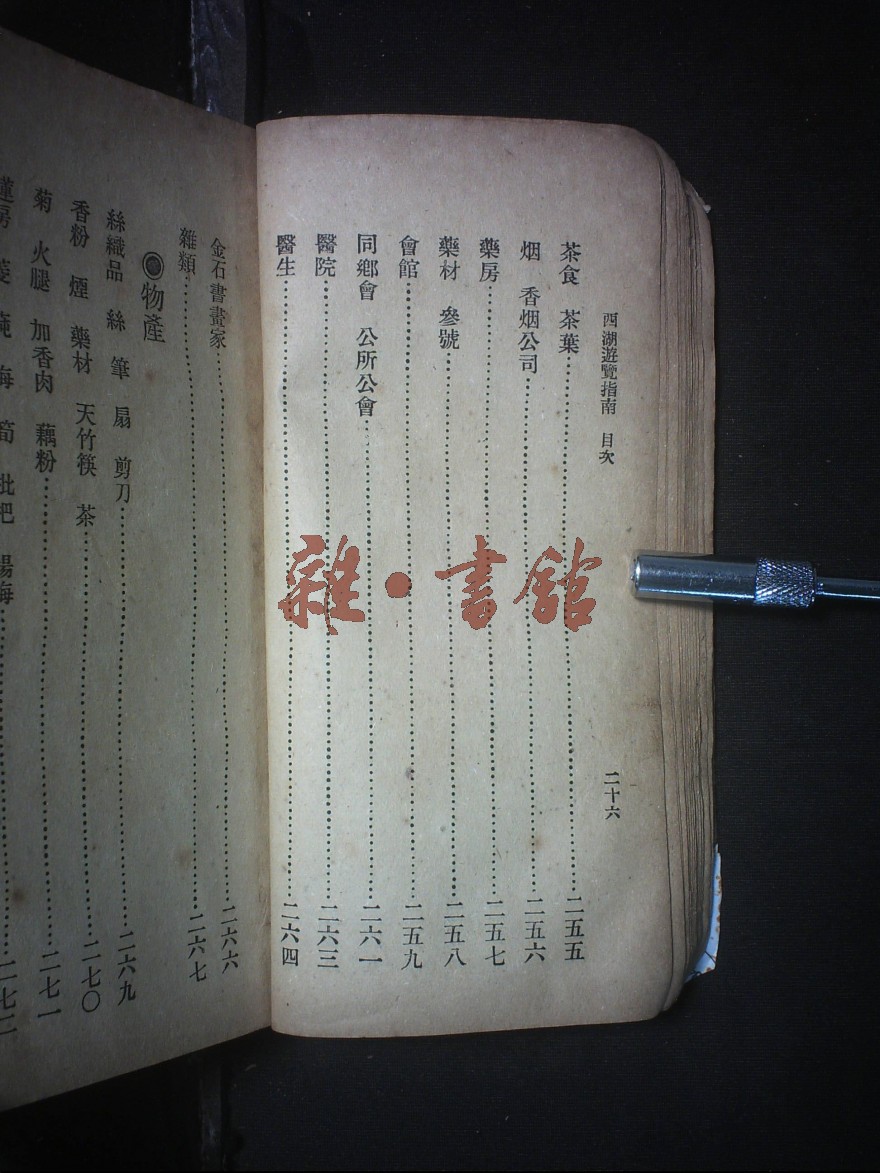 西湖遊覽指南 目次 二十六
茶食 茶葉 二五五
烟 香烟公司 二五六
藥房 二五七
藥材 參號 二五八
會館 二五九
同鄉會 公所公會 二六一
醫院 二六三
醫生 二六四
金石書畫家 二六六
雜類 二六七
◉物產
絲織品 絲 筆 扇 剪刀 二六九
香粉 煙 藥材 天竹筷 茶 二七〇
菊 火腿 加香肉 藕粉 二七一
菱 梅 筍 枇杷 楊梅
雜·書館